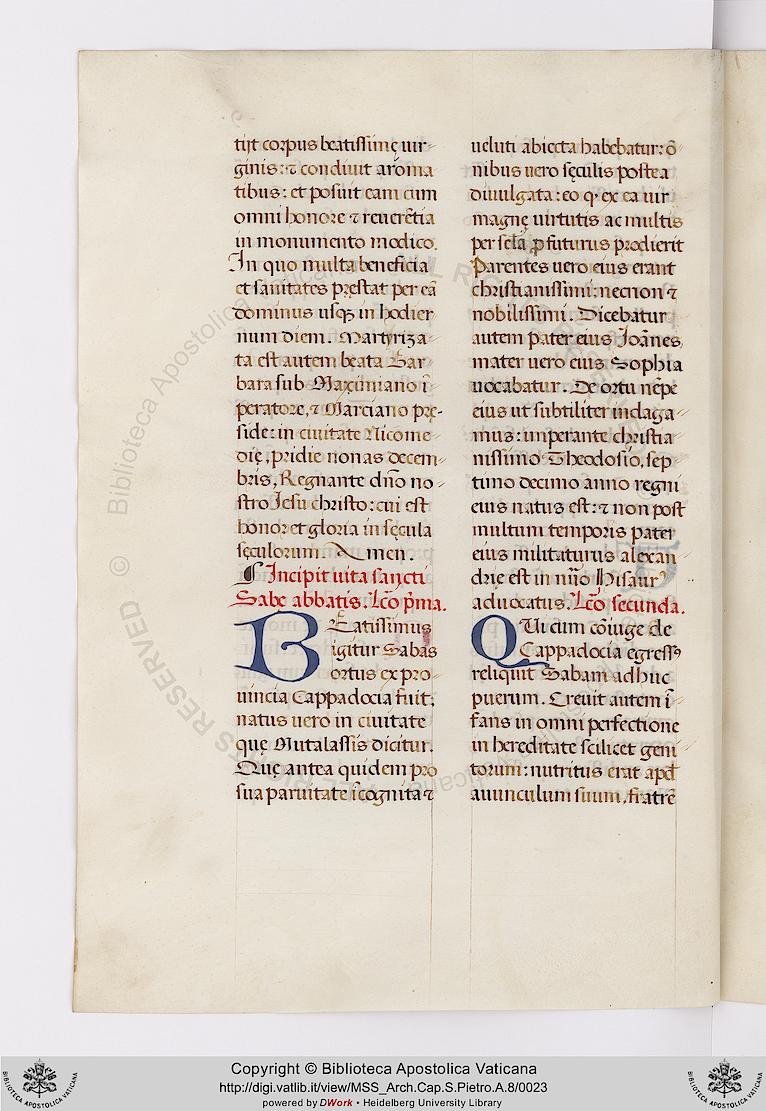 tijt corpus beatissimę uir-
ginis: ⁊ condiuit aroma
tibus: et posuit eam cum
omni honore ⁊ reuerẽtia
in monumento modico.
In quo multa beneficia
et sanitates prestat per eã
dominus usqꝫ in hodier
num diem. Martyriza-
ta est autem beata Bar
bara sub Maximiano ĩ
peratore, ⁊ Marciano prę-
side: in ciuitate Nicome-
dię, pridie nonas decem-
bris, Regnante dño no-
stro Iesu christo: cui est
honor et gloria in sęcula
sęculorum. Amen.
Incipit uita sancti
Sabę abbatis. Lc̃o p̃ma.
BEatissimus
igitur Sabas
ortus ex pro-
uincia Cappadocia fuit,
natus uero in ciuitate
quę Mutalassis dicitur.
Quę antea quidem pro
sua paruitate ĩcognita ⁊
ueluti abiecta habebatur: õ
nibus uero sęculis postea
diuulgata: eo ꝙ ex ea uir
magnę uirtutis ac multis
per sc̃la ꝓfuturus prodierit
Parentes uero eius erant
christianissimi: necnon ⁊
nobilissimi. Dicebatur
autem pater eius Ioãnes,
mater uero eius Sophia
uocabatur. De ortu nẽpe
eius ut subtiliter indaga-
mus: imperante christia-
nissimo Theodosio, sep
timo decimo anno regni
eius natus est: ⁊ non post
multum temporis pater
eius militaturus alexan
drię est in nũo Hisaurꝰ
aduocatus. Lc̃o secunda.
QUi cum cõiuge de
Cappadocia egressꝰ
reliquit Sabam adhuc
puerum. Creuit autem ĩ
fans in omni perfectione
in hereditate scilicet geni-
torum: nutritus erat apđ
auunculum suum, fratrẽ
© Biblioteca Apostolica Vaticana ALL RIGHTS RESERVED
Copyright © Biblioteca Apostolica Vaticana
http://digi.vatlib.it/view/MSS_Arch.Cap.S.Pietro.A.8/0023
powered by DWork • Heidelberg University Library
BIBLIOTECA APOSTOLICA VATICANA
BIBLIOTECA APOSTOLICA VATICANA